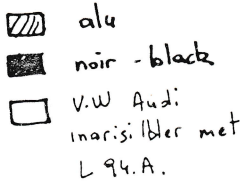 alu
noir - black
V.W Audi
inarisilbler met
L 94.A.